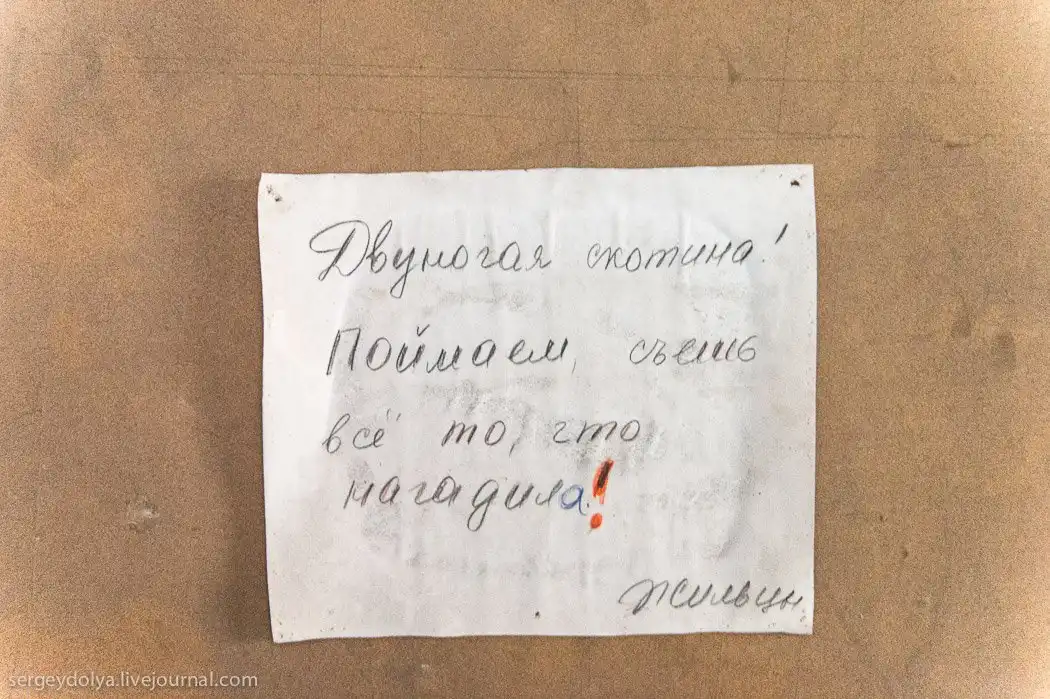 Двуногая скотина!
Поймаем, съешь
всё то, что
нагадила!
Жильцы
sergeydolya.livejournal.com